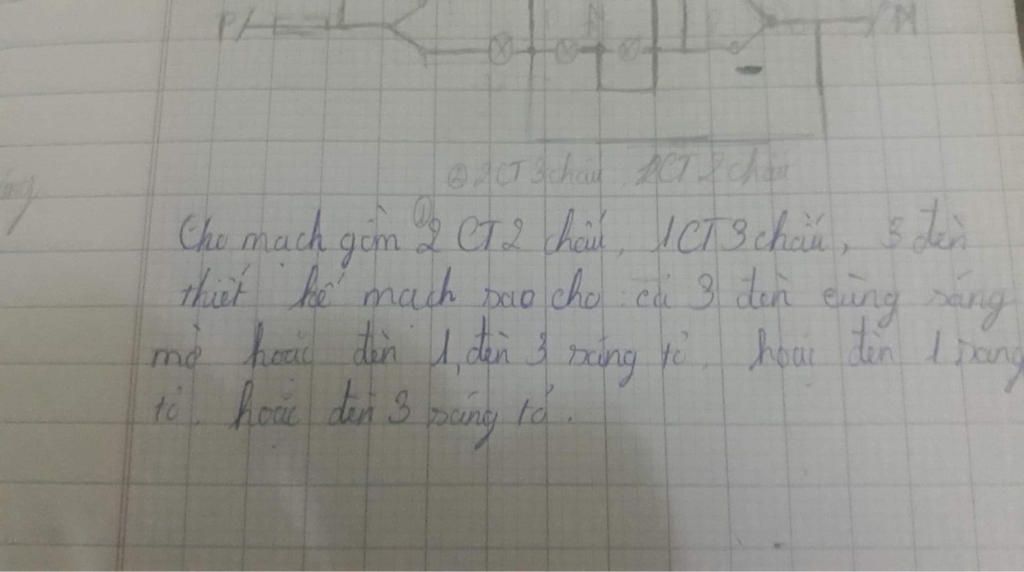 P/
② 2CT 3 chấu, 1CT 2 chấu
Cho mạch gồm ① 2 CT2 chấu, 1CT3chấu, 3 đèn
thiết kế mạch sao cho : cả 3 đèn cùng sáng
mờ hoặc đèn 1, đèn 3 sáng tỏ, hoặc đèn 1 sáng
tỏ, hoặc đèn 3 sáng tỏ.